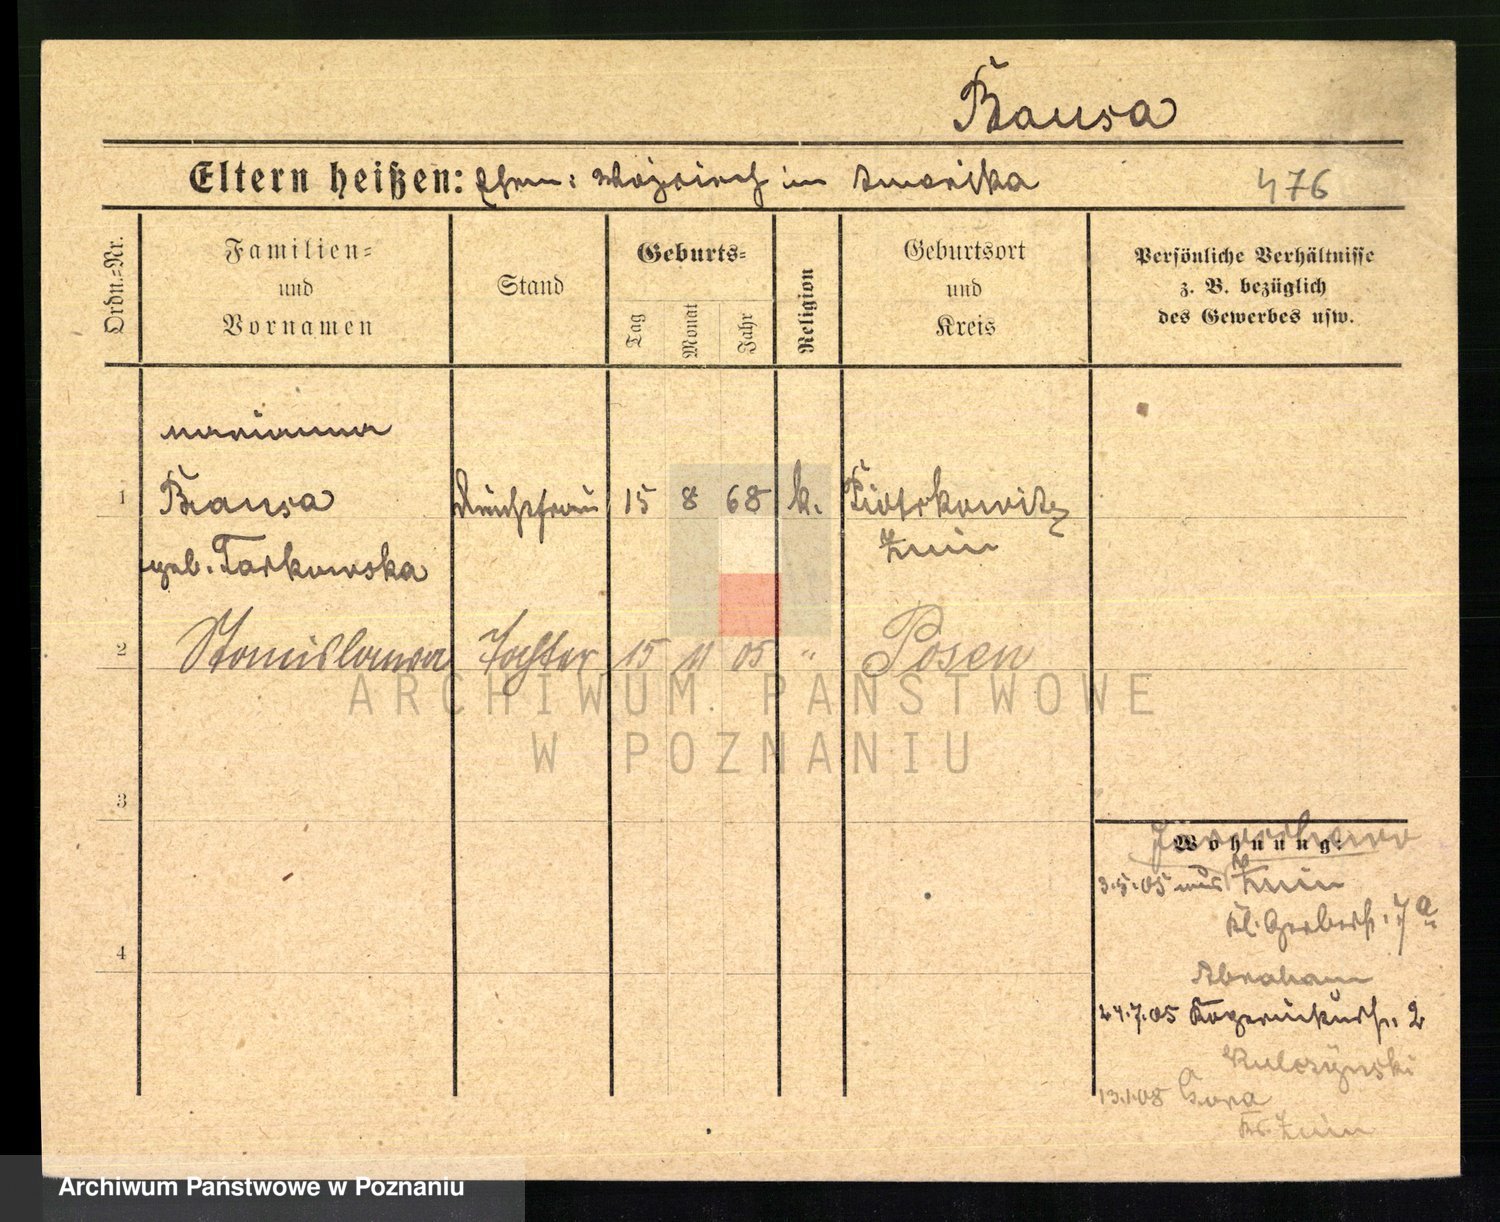 Bansa
Eltern heißen: Ehem: Wojciech in Amerika
476
Ordn.=Nr.
Familien=
und
Vornamen
Stand
Geburts=
Tag
Monat
Jahr
Religion
Geburtsort
und
Kreis
Persönliche Verhältnisse
z. B. bezüglich
des Gewerbes usw.
Marianna
1 Bansa 15 8 68 k. Piotrkowitz
geb. Tarkowska Znin
2 Stanislawa Tochter 15 11 05 " Posen
ARCHIWUM PAŃSTWOWE
W POZNANIU
3
Wohnung:
3.5.05 aus Znin
Kl. Gerberstr. 7a
4
Abraham
24.7.05 2
Kulczynski
13.1.08 Gora
Kr. Znin
Archiwum Państwowe w Poznaniu